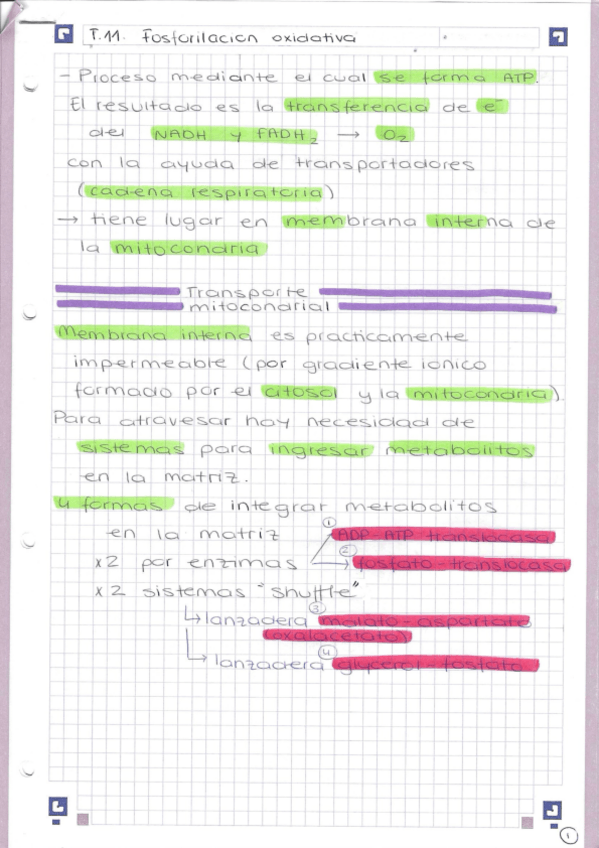 T.11. Fosforilación oxidativa
- Proceso mediante el cual se forma ATP.
El resultado es la transferencia de e⁻
del NADH y FADH₂ → O₂
con la ayuda de transportadores
(cadena respiratoria)
→ tiene lugar en membrana interna de
la mitocondria
Transporte
mitocondrial
Membrana interna es practicamente
impermeable (por gradiente iónico
formado por el citosol y la mitocondria).
Para atravesar hay necesidad de
sistemas para ingresar metabolitos
en la matriz.
4 formas de integrar metabolitos
en la matriz ① ADP-ATP translocasa
x2 por enzimas ② fosfato-translocasa
x2 sistemas "shuttle"
↳ lanzadera ③ malato-aspartate
(oxalacetato)
↳ lanzadera ④ glycerol-fosfato
1